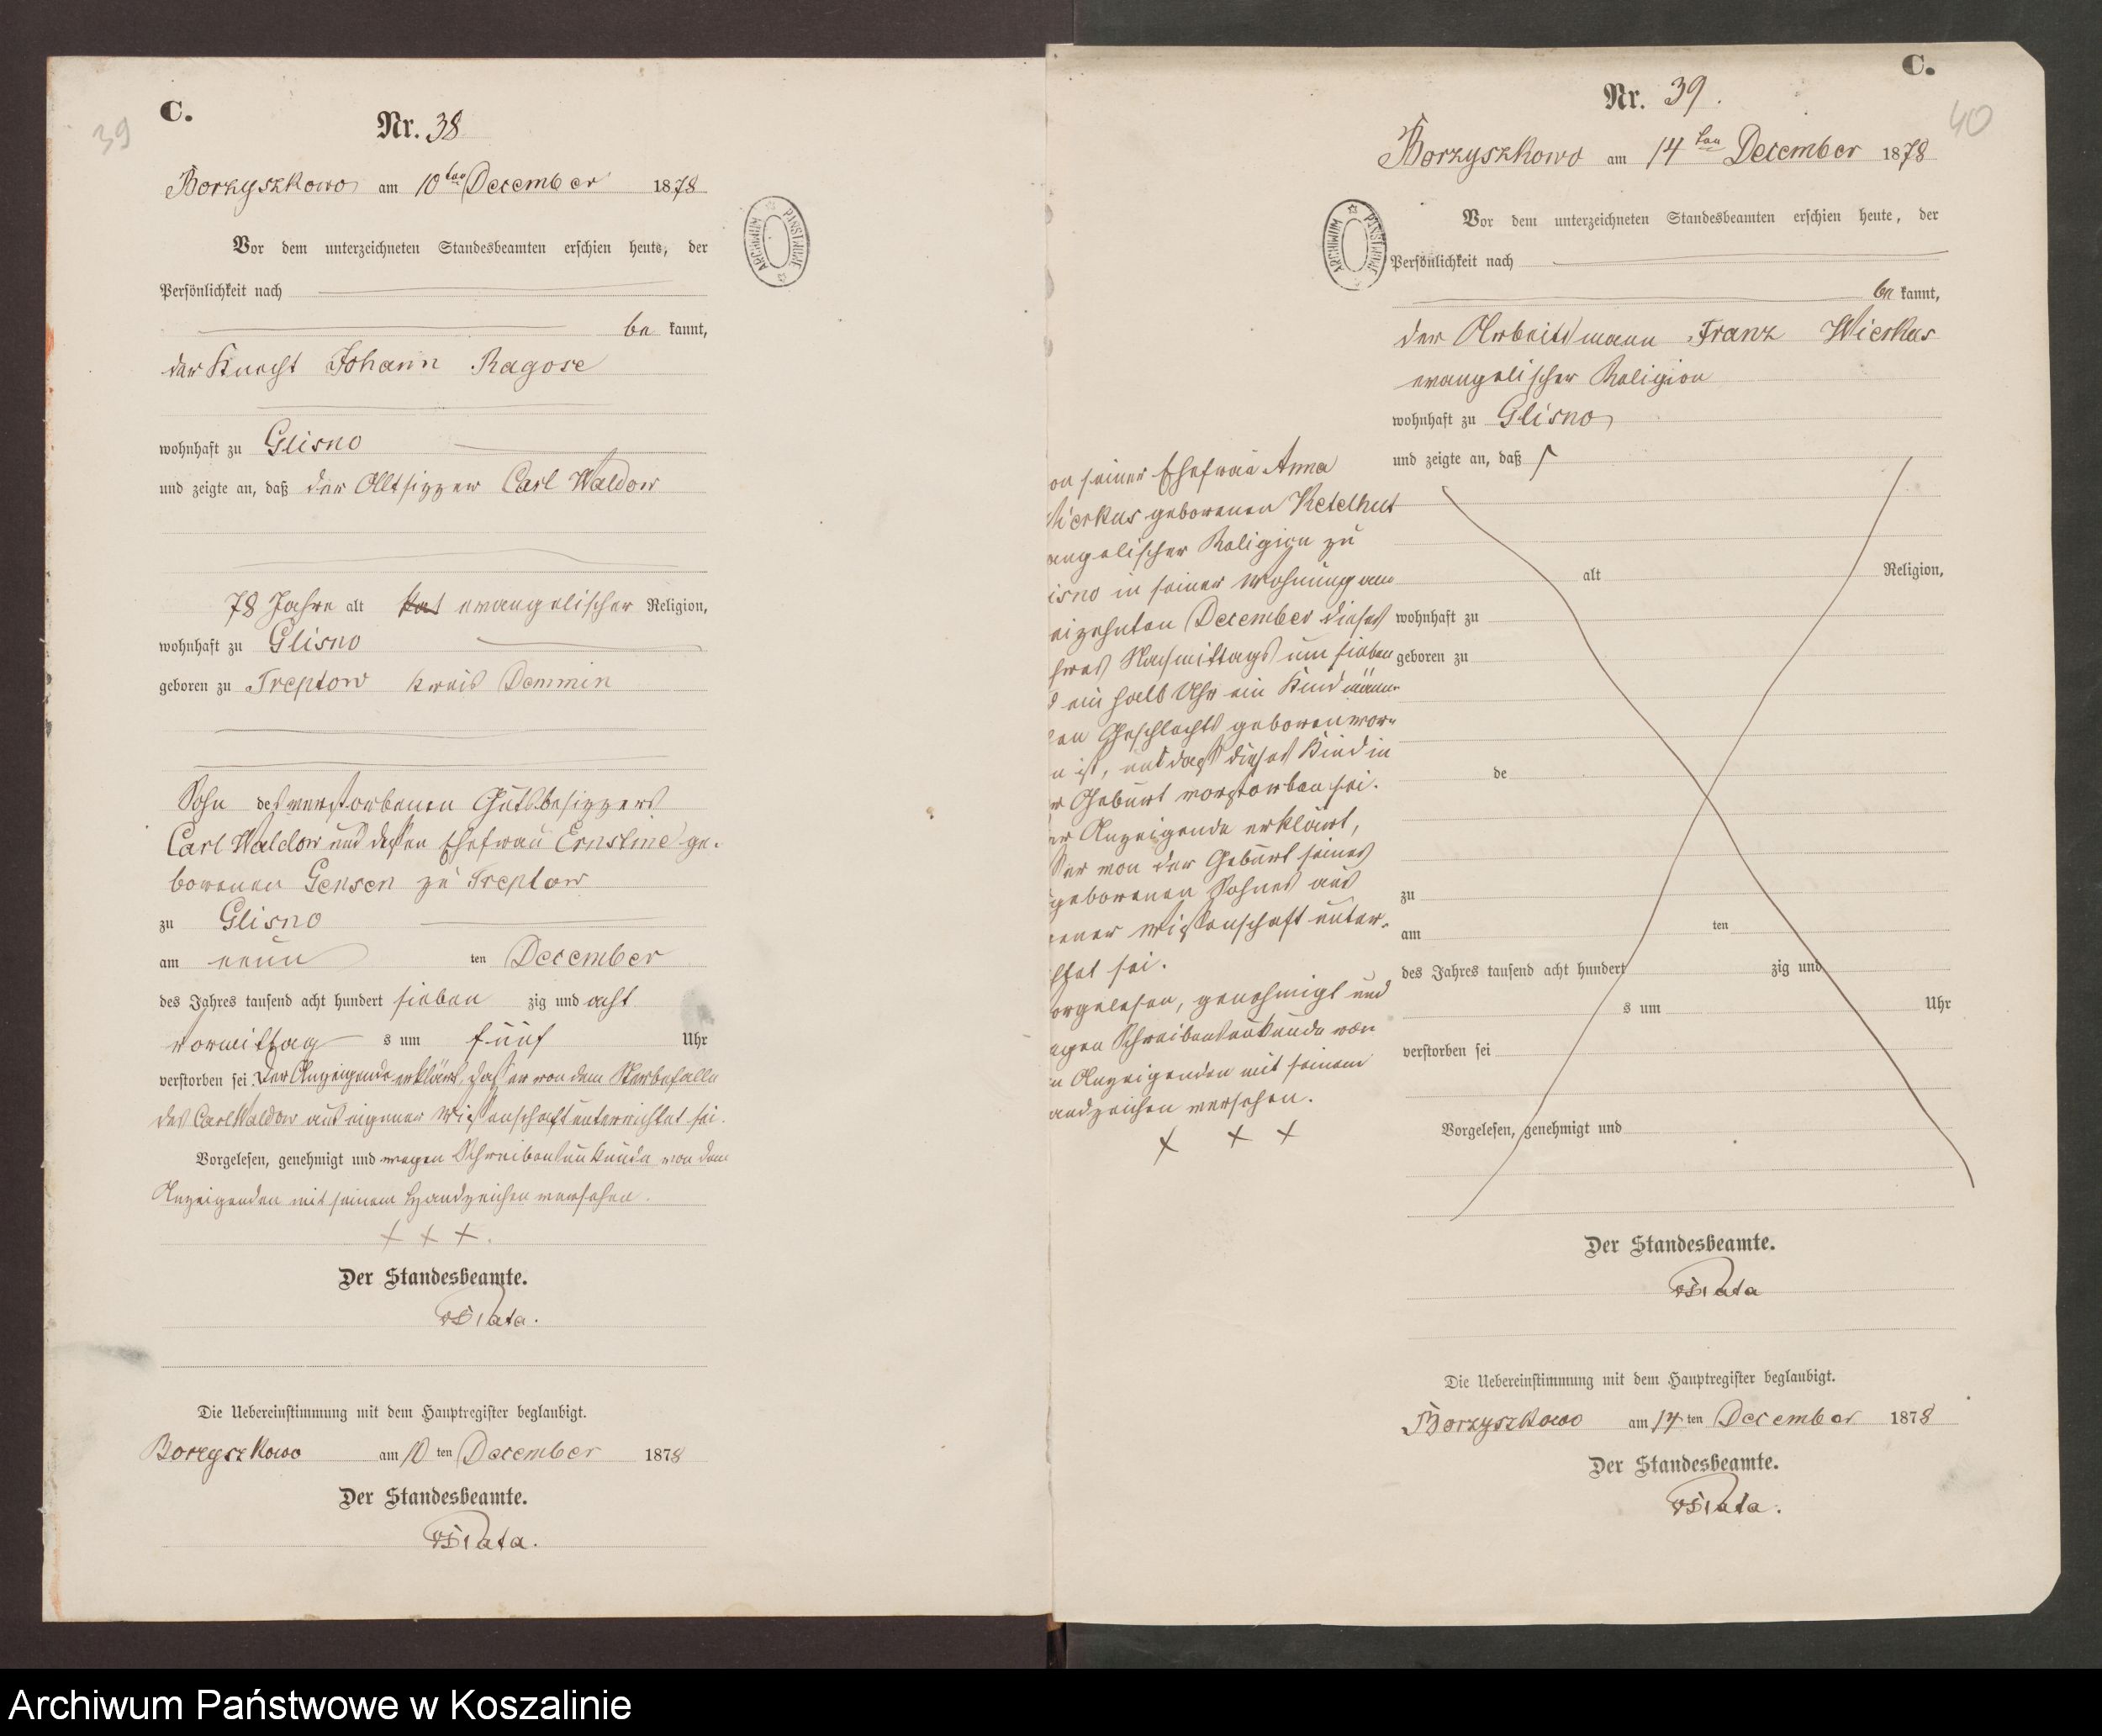 39
C.
Nr. 38
Borzyszkowo am 10ten December 1878
Vor dem unterzeichneten Standesbeamten erschien heute, der
Persönlichkeit nach
be kannt,
der Knecht Johann Ragose
wohnhaft zu Glisno
und zeigte an, daß der Altsitzer Carl Waldow
78 Jahre alt evangelischer Religion,
wohnhaft zu Glisno
geboren zu Treptow Kreis Demmin
Sohn des verstorbenen Gutsbesitzers
Carl Waldow und dessen Ehefrau Ernstine ge-
borenen Gensen zu Treptow
zu Glisno
am neun ten December
des Jahres tausend acht hundert sieben zig und acht
vormittag s um fünf Uhr
verstorben sei. Der Anzeigende erklärt, daß er von dem Sterbefalle
des Carl Waldow aus eigener Wissenschaft unterrichtet sei.
Vorgelesen, genehmigt und wegen Schreibensunkunde von dem
Anzeigenden mit seinem Handzeichen versehen.
+ + +.
Der Standesbeamte.
Die Uebereinstimmung mit dem Hauptregister beglaubigt.
Borzyszkowo am 10 ten December 1878
Der Standesbeamte.
ARCHIWUM PAŃSTWOWE
C.
40
Nr. 39.
Borzyszkowo am 14ten December 1878
Vor dem unterzeichneten Standesbeamten erschien heute, der
Persönlichkeit nach
be kannt,
der Arbeitsmann Franz Wierkus
evangelischer Religion
wohnhaft zu Glisno
und zeigte an, daß
on seiner Ehefrau Anna
ierkus geborenen Ketelhut
angelischer Religion zu
isno in seiner Wohnung am
eizehnten December dieses
hres Nachmittags um sieben
d ein halb Uhr ein Kind männ-
en Geschlechts geboren wor-
n ist, und daß dieses Kind in
r Geburt verstorben sei.
er Anzeigende erklärt,
ß er von der Geburt seines
geborenen Sohnes aus
gener Wissenschaft unter-
chtet sei.
orgelesen, genehmigt und
egen Schreibensunkunde von
m Anzeigenden mit seinem
andzeichen versehen.
+ + +
alt Religion,
wohnhaft zu
geboren zu
de
zu
am ten
des Jahres tausend acht hundert zig und
s um Uhr
verstorben sei
Vorgelesen, genehmigt und
Der Standesbeamte.
Die Uebereinstimmung mit dem Hauptregister beglaubigt.
Borzyszkowo am 14 ten December 1878
Der Standesbeamte.
ARCHIWUM PAŃSTWOWE
Archiwum Państwowe w Koszalinie